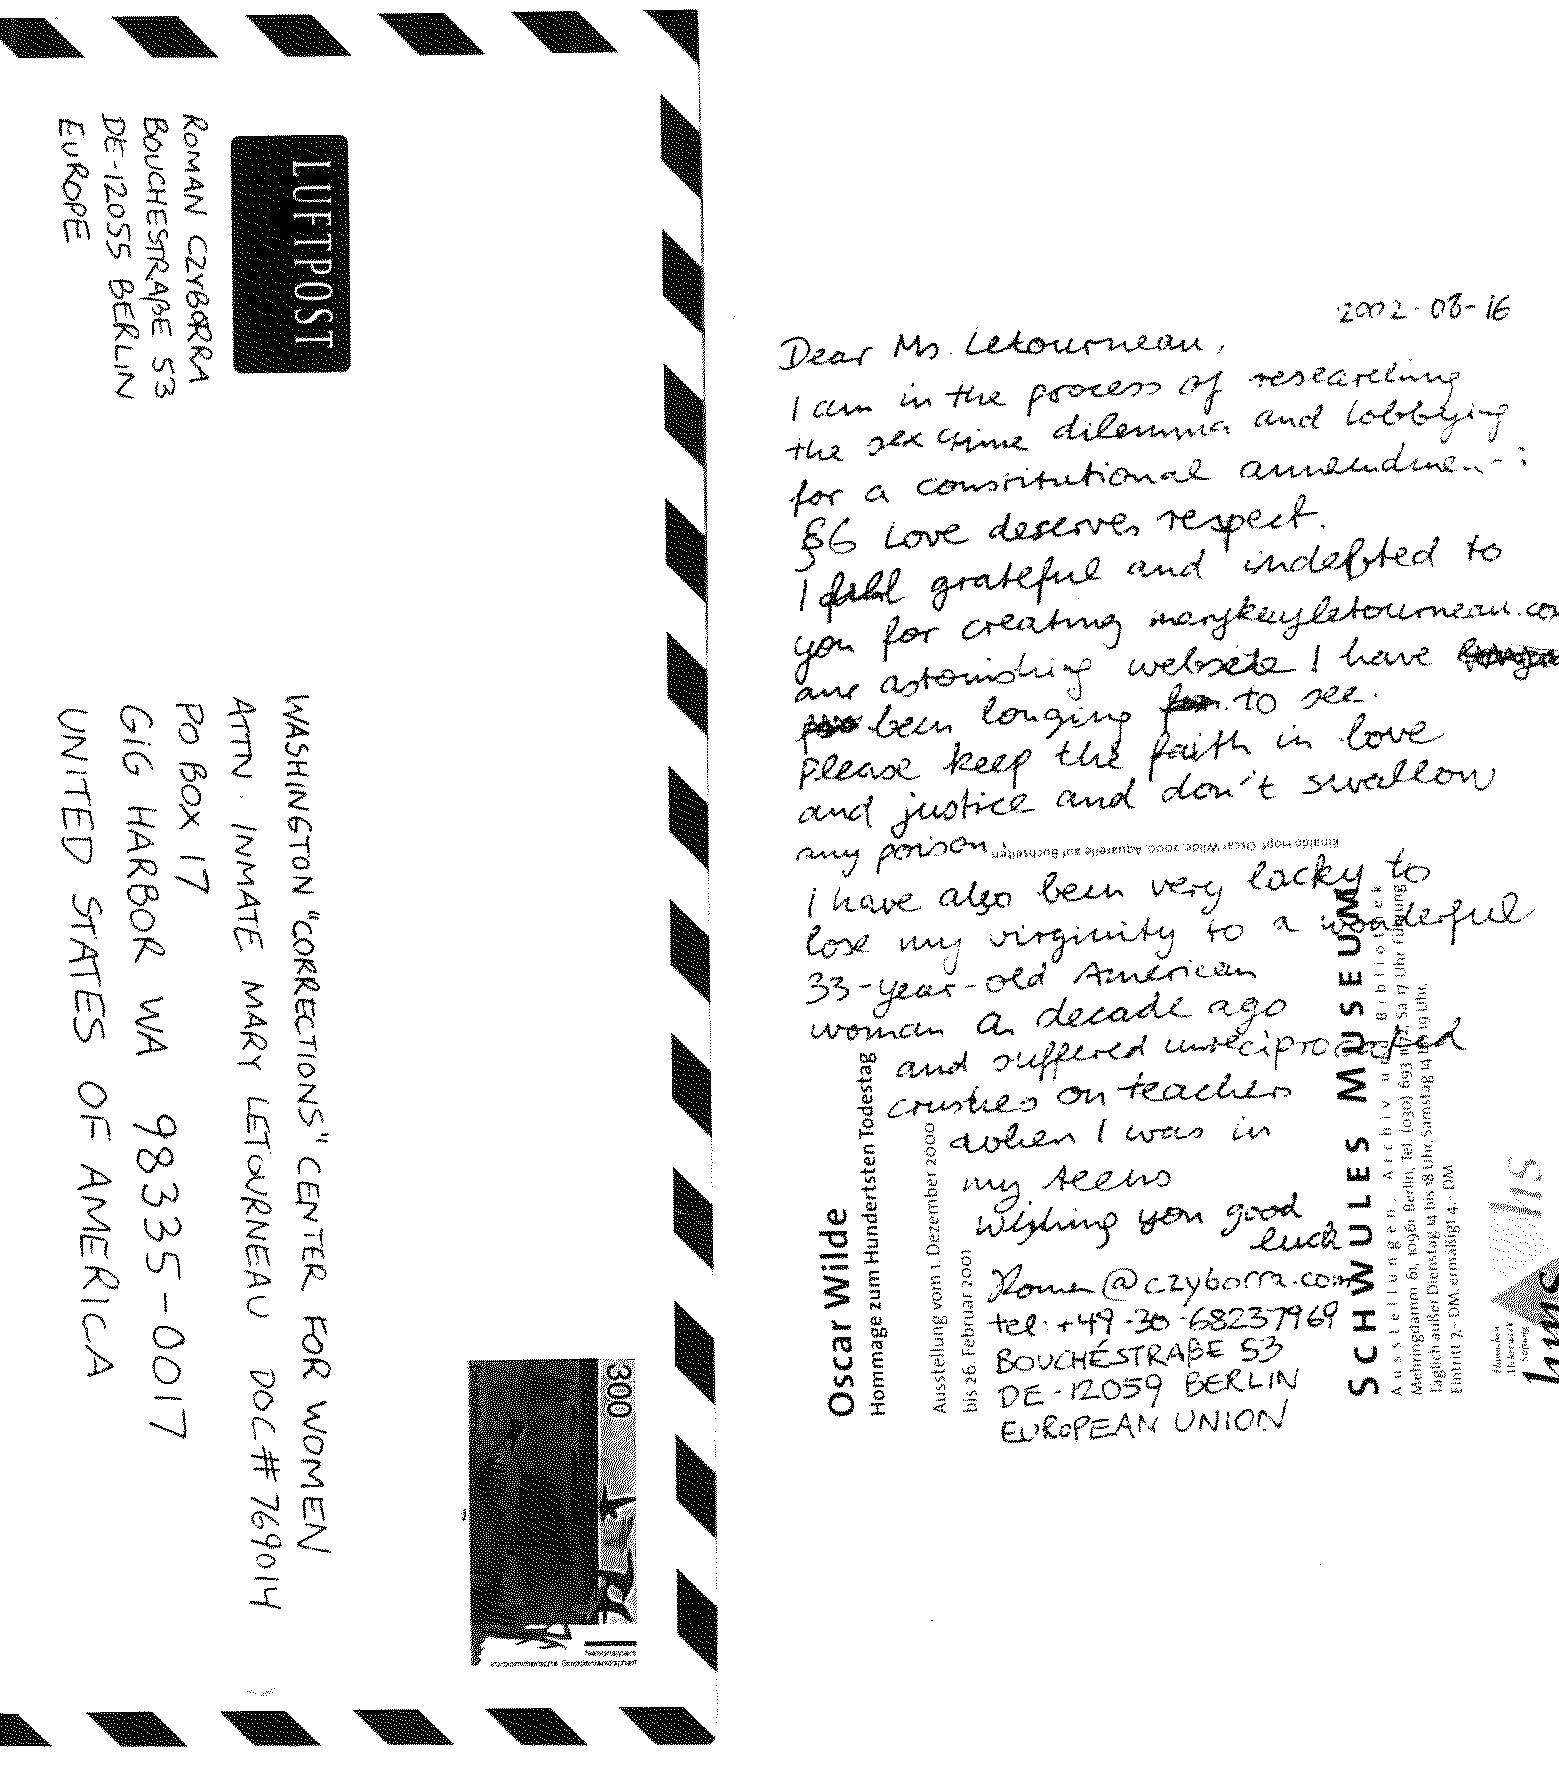 LUFTPOST
ROMAN CZYBORRA
BOUCHESTRAßE 53
DE-12055 BERLIN
EUROPE
300
WASHINGTON "CORRECTIONS" CENTER FOR WOMEN
ATTN. INMATE MARY LETOURNEAU DOC# 769014
PO BOX 17
GIG HARBOR WA 98335-0017
UNITED STATES OF AMERICA
2002-08-16
Dear Ms. Letourneau,
I am in the process of researching
the sex crime dilemma and lobbying
for a constitutional
§6 Love deserves respect.
I grateful and indebted to
you for creating marykayletourneau.com
astonishing website I have
been longing to see.
Please keep the faith in love
and justice and don't swallow
any poison.
Rinaldo Hopf Oscar Wilde, 2000, Aquarelle auf Buchseiten
I have also been very lucky to
lose my virginity to a wonderful
33-year-old American
woman a decade ago
and suffered unreciprocated
crushes on teachers
when I was in
my teens
Wishing you good
luck
Roman@czyborra.com
tel. +49-30-68237969
BOUCHÉSTRAßE 53
DE-12059 BERLIN
EUROPEAN UNION
Oscar Wilde
Hommage zum Hundertsten Todestag
Ausstellung vom 1. Dezember 2000
bis 26. Februar 2001
SCHWULES MUSEUM
Ausstellungen, Archiv und Bibliothek
Mehringdamm 61, 10961 Berlin, Tel. (030) 693 11 72, Sa 17 Uhr Führung
Täglich außer Dienstag 14 bis 18 Uhr, Samstag 14 bis 19 Uhr,
Eintritt 7,- DM, ermäßigt 4,- DM
hms